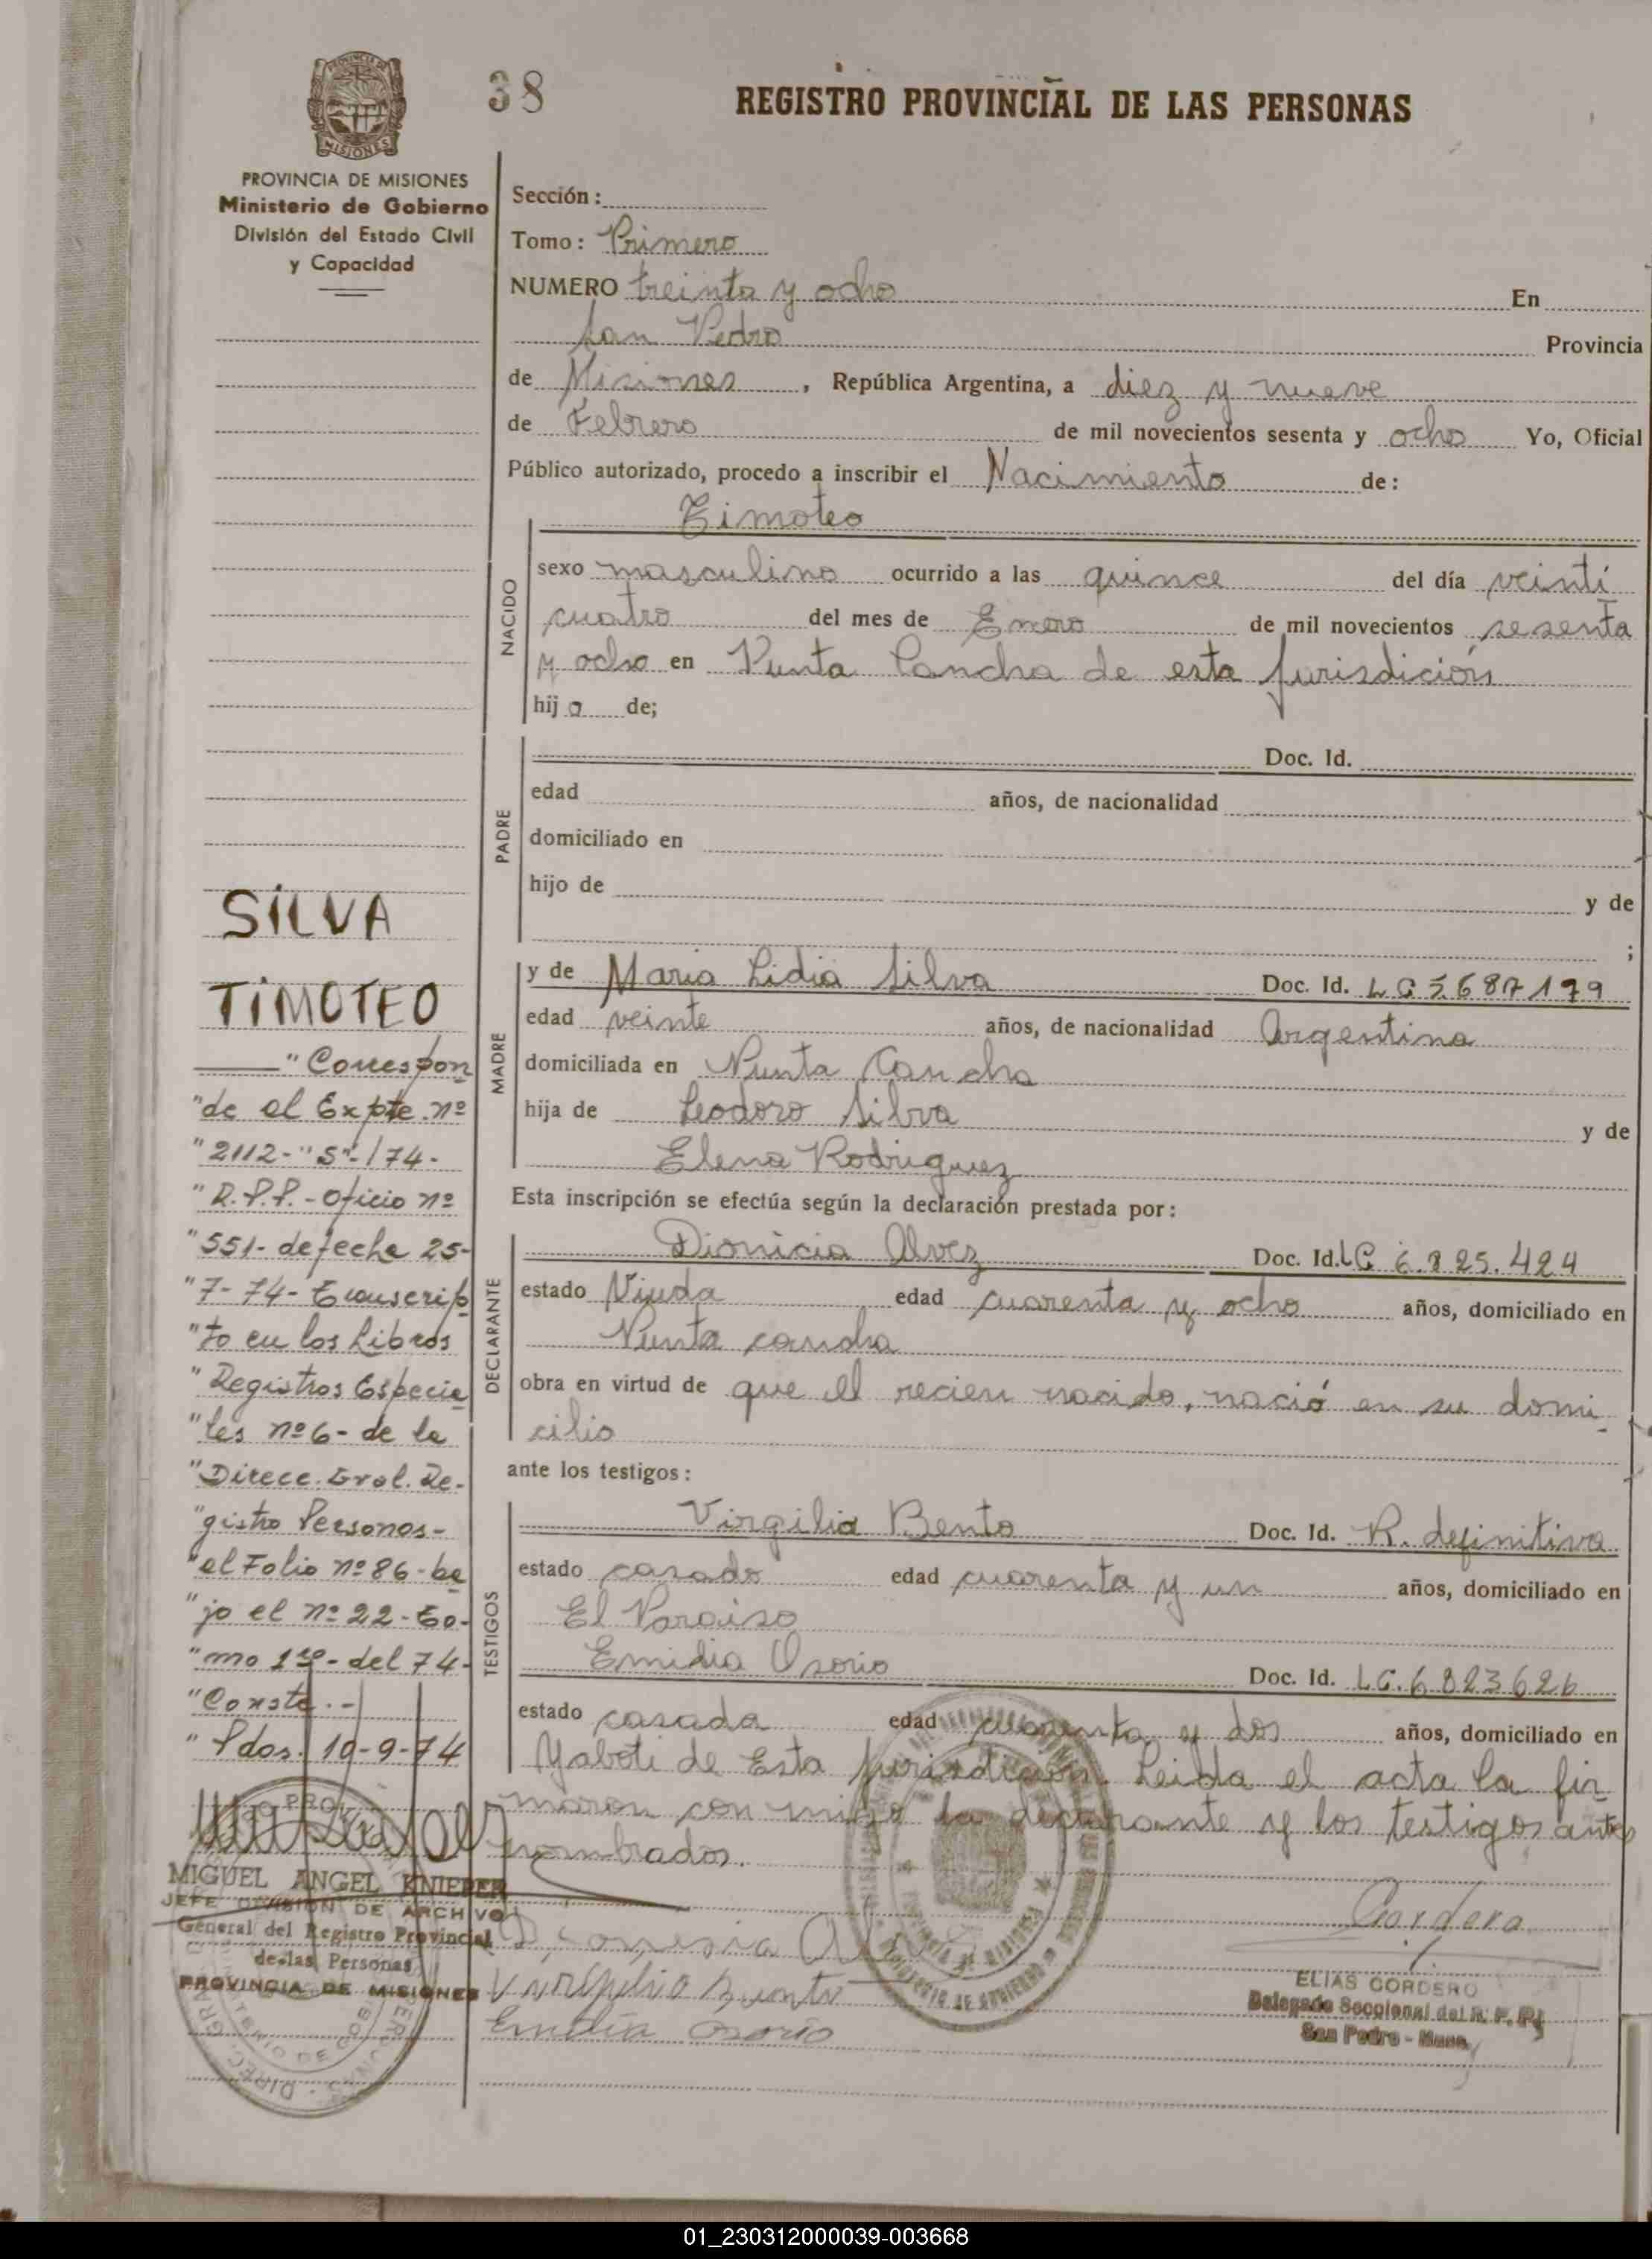 38
REGISTRO PROVINCIAL DE LAS PERSONAS
PROVINCIA DE
MISIONES
PROVINCIA DE MISIONES
Ministerio de Gobierno
División del Estado Civil
y Capacidad
Sección:
Tomo: Primero
NUMERO treinta y ocho En
San Pedro Provincia
de Misiones, República Argentina, a diez y nueve
de Febrero de mil novecientos sesenta y ocho Yo, Oficial
Público autorizado, procedo a inscribir el Nacimiento de:
Timoteo
NACIDO
sexo masculino ocurrido a las quince del día veinti
cuatro del mes de Enero de mil novecientos sesenta
y ocho en Punta Cancha de esta Jurisdición
hijo de;
PADRE
Doc. Id.
edad años, de nacionalidad
domiciliado en
hijo de y de
;
MADRE
y de Maria Lidia Silva Doc. Id. LC 5.687.179
edad veinte años, de nacionalidad Argentina
domiciliada en Punta Cancha
hija de Leodoro Silva y de
Elena Rodriguez
Esta inscripción se efectúa según la declaración prestada por:
DECLARANTE
Dionicia Alvez Doc. Id. LC 6.825.424
estado Viuda edad cuarenta y ocho años, domiciliado en
Punta cancha
obra en virtud de que el recien nacido, nació en su domi-
cilio
ante los testigos:
TESTIGOS
Virgilio Bento Doc. Id. R. definitiva
estado casado edad cuarenta y un años, domiciliado en
El Paraiso
Emidia Osorio Doc. Id. LC. 6823626
estado casada edad cuarenta y dos años, domiciliado en
Yaboti de Esta jurisdicion. Leida el acta la fir
maron con migo la declarante y los testigos antes
nombrados.
SILVA
TIMOTEO
"Correspon
"de al Expte. nº
"2112-"S"-/74-
"R.P.P.-Oficio nº
"551- de fecha 25-
"7-74- Transcrip
"to en los Libros
"Registros Especia
"les nº 6- de la
"Direcc. Gral. Re-
"gistro Personas-
"al Folio nº 86-ba
"jo el nº 22-To-
"mo 1ro- del 74-
"Conste.-
"Pdas. 10-9-74
MIGUEL ANGEL KNIEPER
JEFE DIVISION DE ARCHIVO
General del Registro Provincial
de las Personas
PROVINCIA DE MISIONES
Virgilio Bento
Emidia Osorio
Cordero
ELIAS CORDERO
Delegado Seccional del R. P. P.
San Pedro - Mnes.
01_230312000039-003668